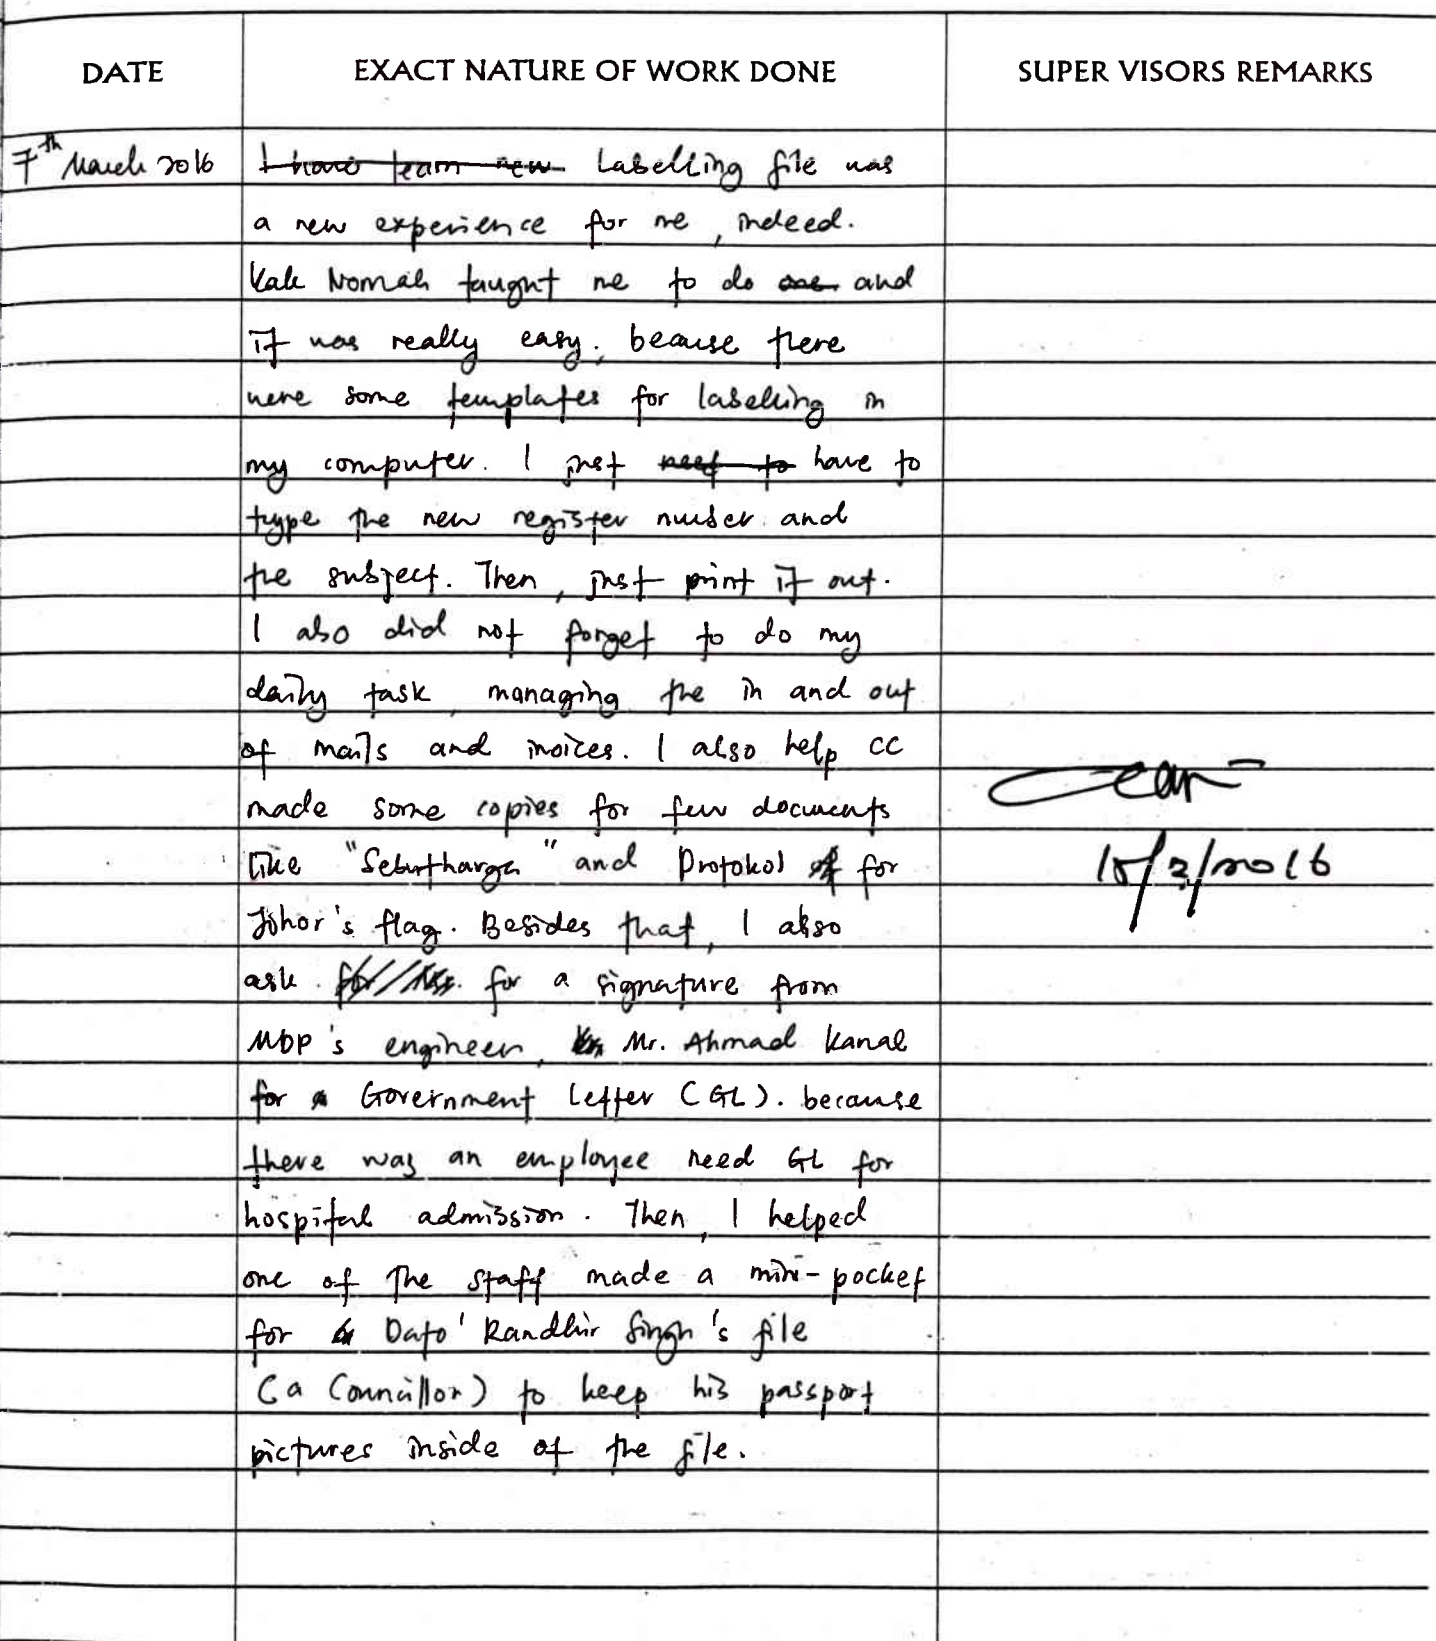 DATE EXACT NATURE OF WORK DONE SUPER VISORS REMARKS
7th March 2016 I have learn new Labelling file was
a new experience for me, indeed.
Kak Nomah taught me to do and
it was really easy. because there
were some templates for labelling in
my computer. I just need to have to
type the new register number and
the subject. Then, just print it out.
I also did not forget to do my
daily task, managing the in and out
of mails and invoices. I also help CC
made some copies for few documents
like "Sebutharga" and Protokol for
Johor's flag. Besides that, I also
ask for a signature from
MDP's engineer, Mr. Ahmad Kamal
for Government Letter (GL). because
there was an employee need GL for
hospital admission. Then, I helped
one of the staff made a mini-pocket
for Dato' Randhir Singh's file
(a Councillor) to keep his passport
pictures inside of the file.
15/3/2016